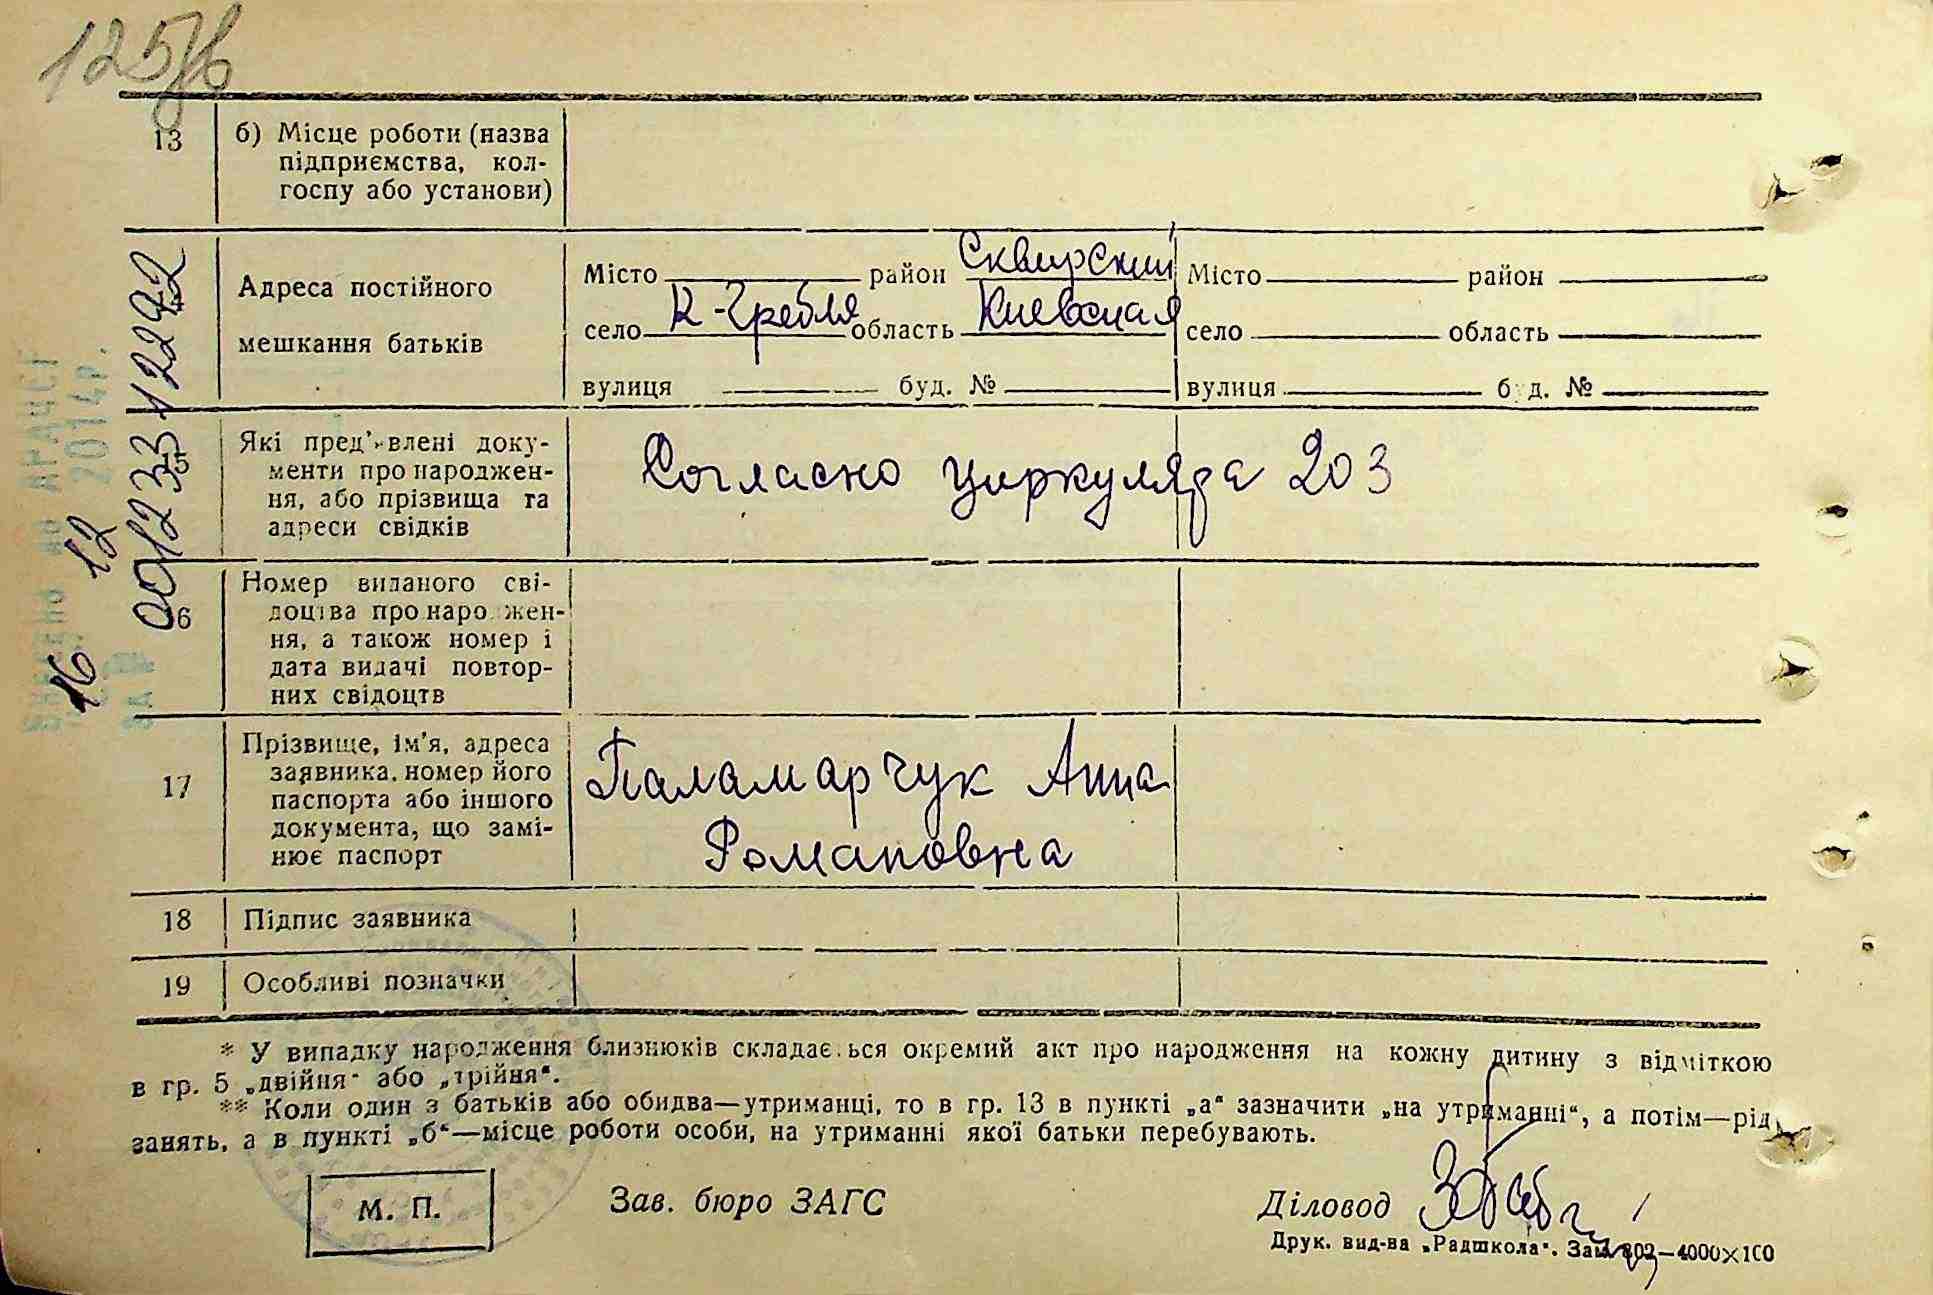 13
б) Місце роботи (назва
підприємства, кол-
госпу або установи)
Адреса постійного
мешкання батьків
Місто район Сквирский
село К-Гребля область Киевская
вулиця буд. №
Місто район
село область
вулиця буд. №
00123312292
Які пред'явлені доку-
менти про народжен-
ня, або прізвища та
адреси свідків
Согласно циркуляра 203
16 12 2014р.
Номер виданого сві-
доцтва про народжен-
ня, а також номер і
дата видачі повтор-
них свідоцтв
17
Прізвище, ім'я, адреса
заявника, номер його
паспорта або іншого
документа, що замі-
нює паспорт
Паламарчук Анна
Романовна
18
Підпис заявника
19
Особливі позначки
* У випадку народження близнюків складається окремий акт про народження на кожну дитину з відміткою
в гр. 5 „двійня“ або „трійня“.
** Коли один з батьків або обидва—утриманці, то в гр. 13 в пункті „а“ зазначити „на утриманні“, а потім—рід
занять, а в пункті „б“—місце роботи особи, на утриманні якої батьки перебувають.
М. П.
Зав. бюро ЗАГС
Діловод
Друк. вид-ва „Радшкола“. Зам. 802—4000×100